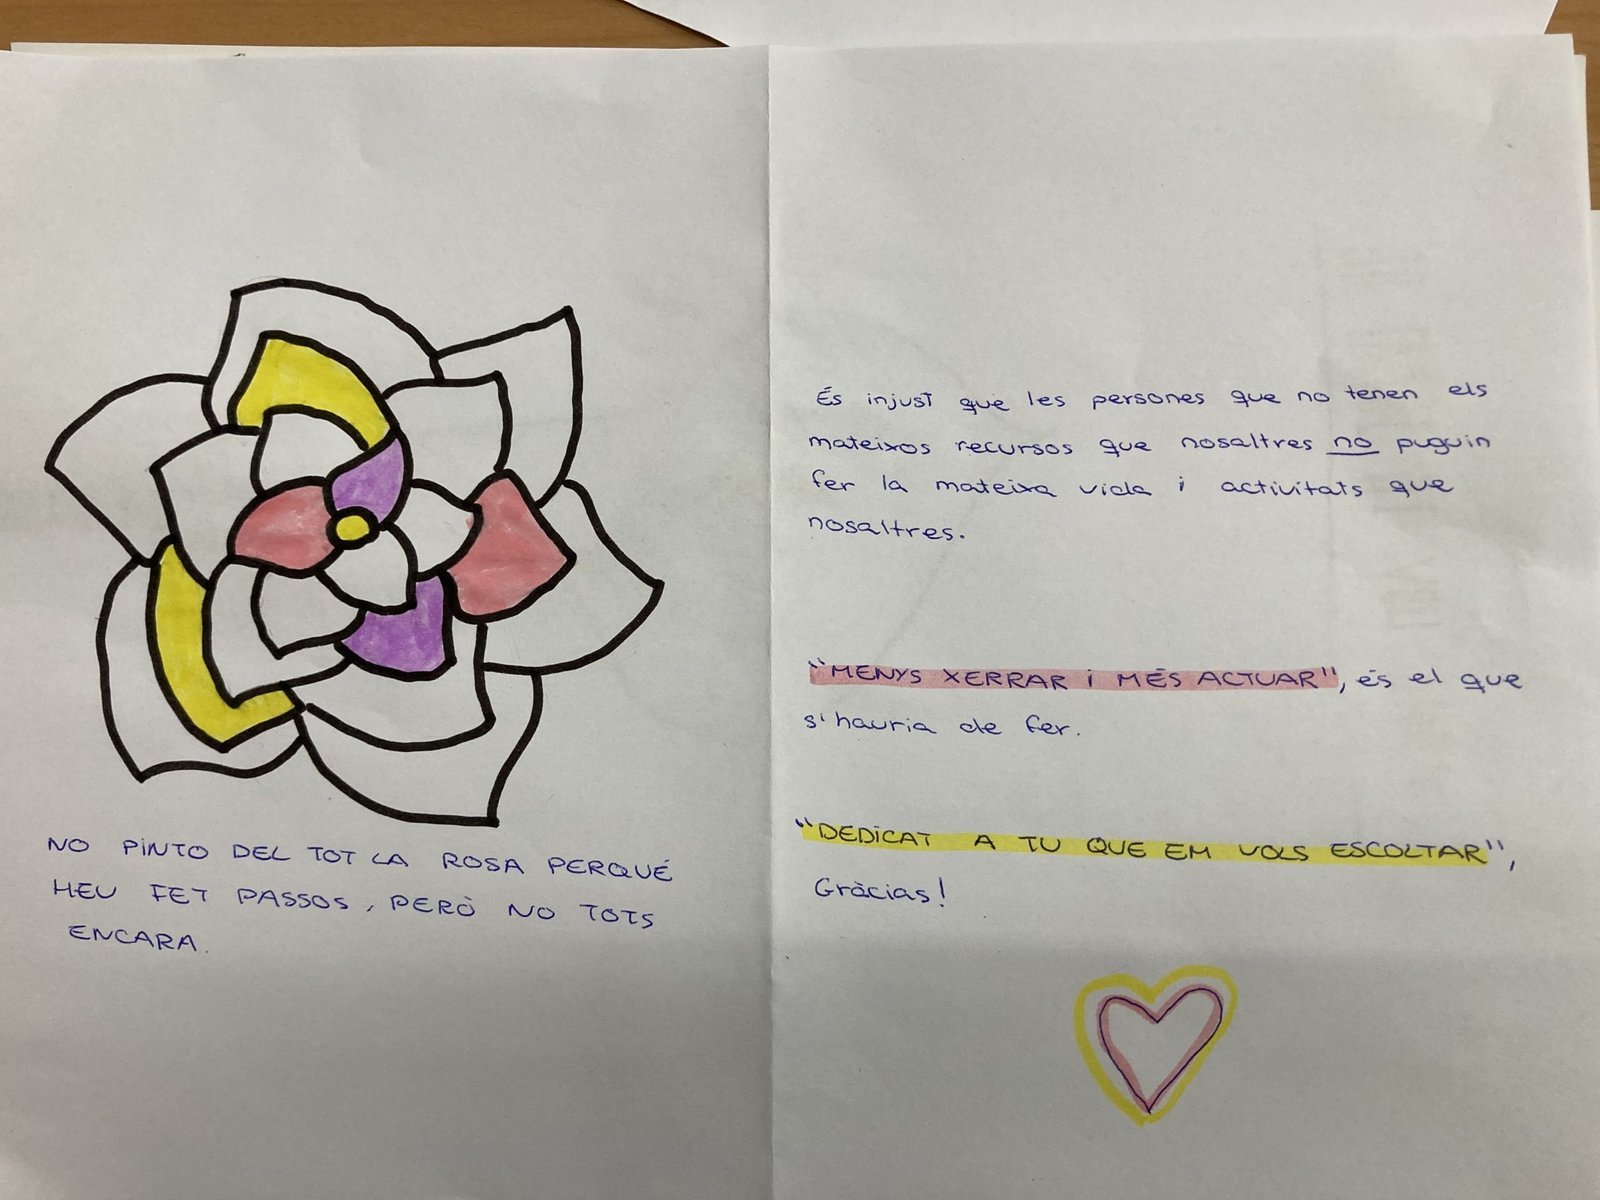 NO PINTO DEL TOT LA ROSA PERQUÉ
HEU FET PASSOS, PERÒ NO TOTS
ENCARA.
És injust que les persones que no tenen els
mateixos recursos que nosaltres no puguin
fer la mateixa vida i activitats que
nosaltres.
"MENYS XERRAR i MÉS ACTUAR", és el que
s'hauria de fer.
"DEDICAT A TU QUE EM VOLS ESCOLTAR",
Gràcias!